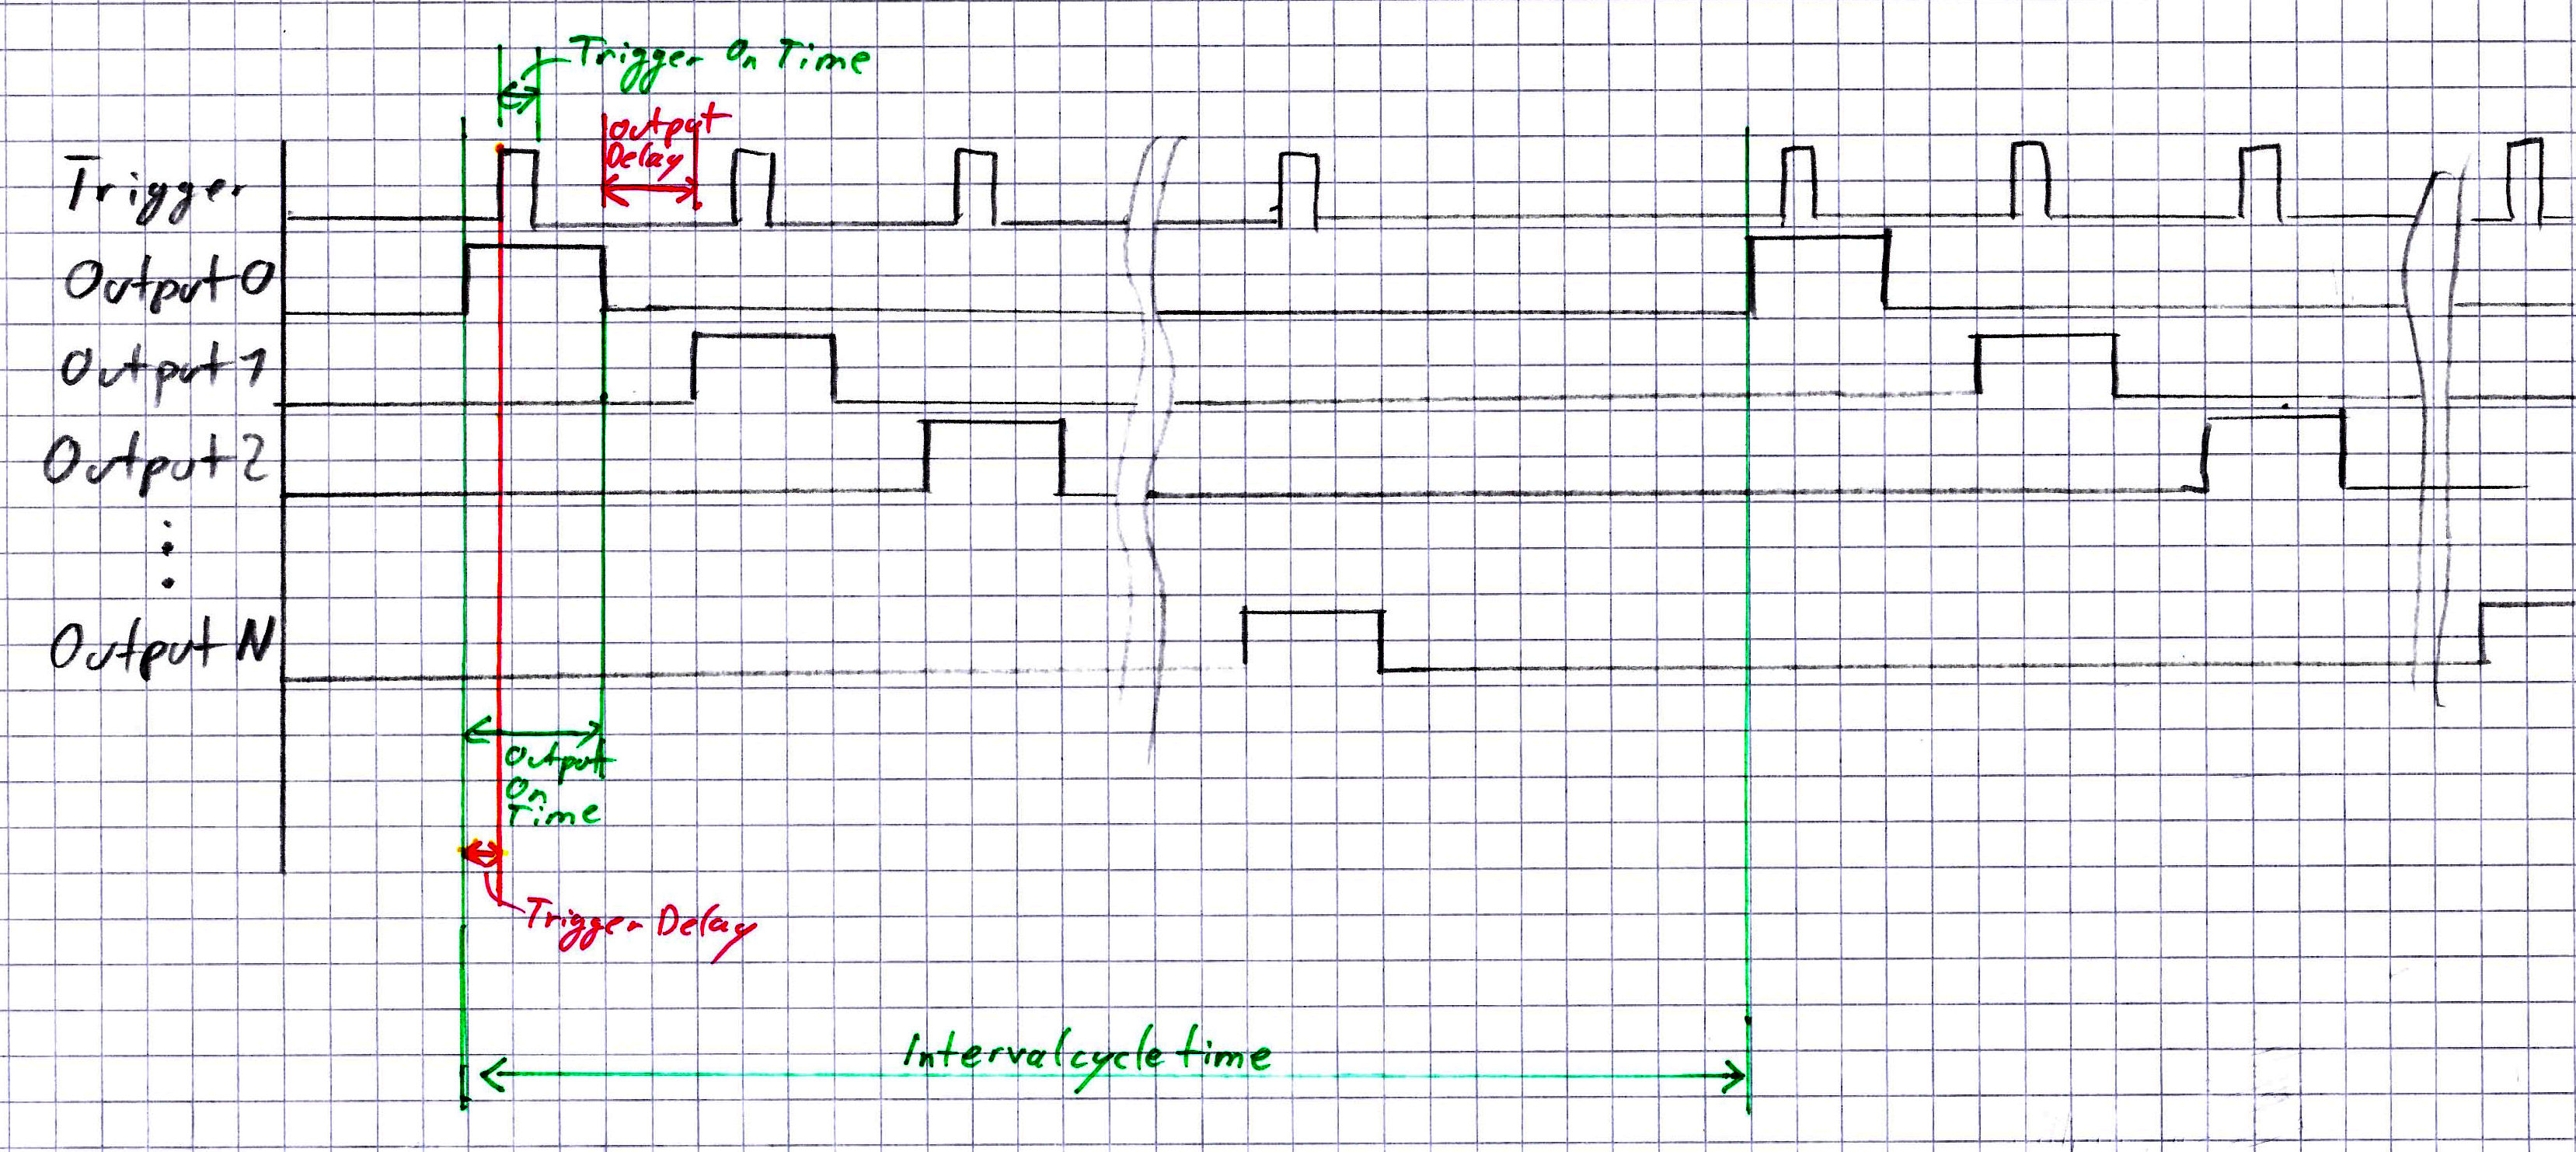 Trigger On Time
Output
Delay
Trigger
Output 0
Output 1
Output 2
Output N
Output
On
Time
Trigger Delay
Intervalcycle time